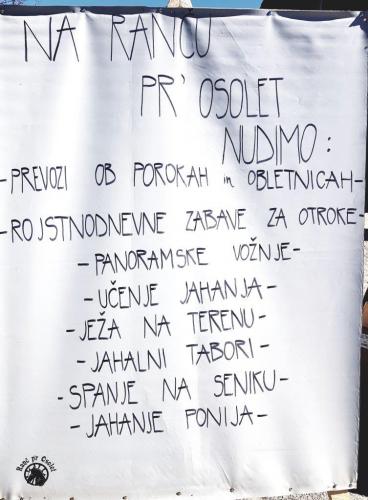 NA RANČU
PR' OSOLET
NUDIMO:
-PREVOZI OB POROKAH in OBLETNICAH-
-ROJSTNODNEVNE ZABAVE ZA OTROKE-
-PANORAMSKE VOŽNJE-
-UČENJE JAHANJA-
-JEŽA NA TERENU-
-JAHALNI TABORI-
-SPANJE NA SENIKU-
-JAHANJE PONIJA-
Ranč pr Osolet